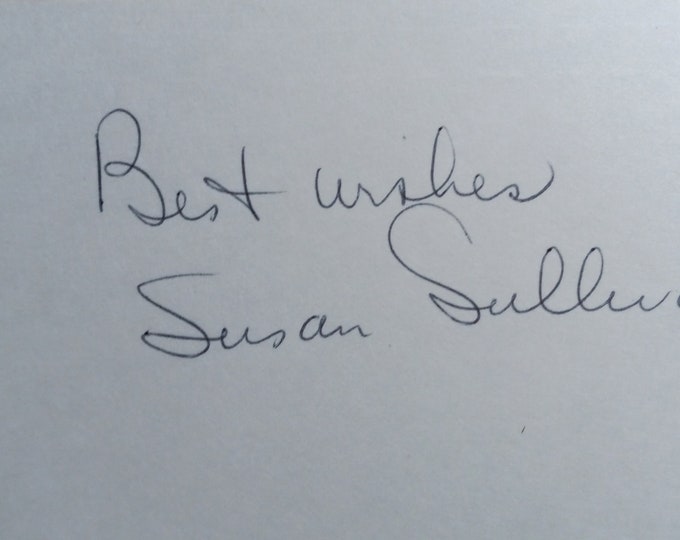 Best wishes
Susan Sulliva